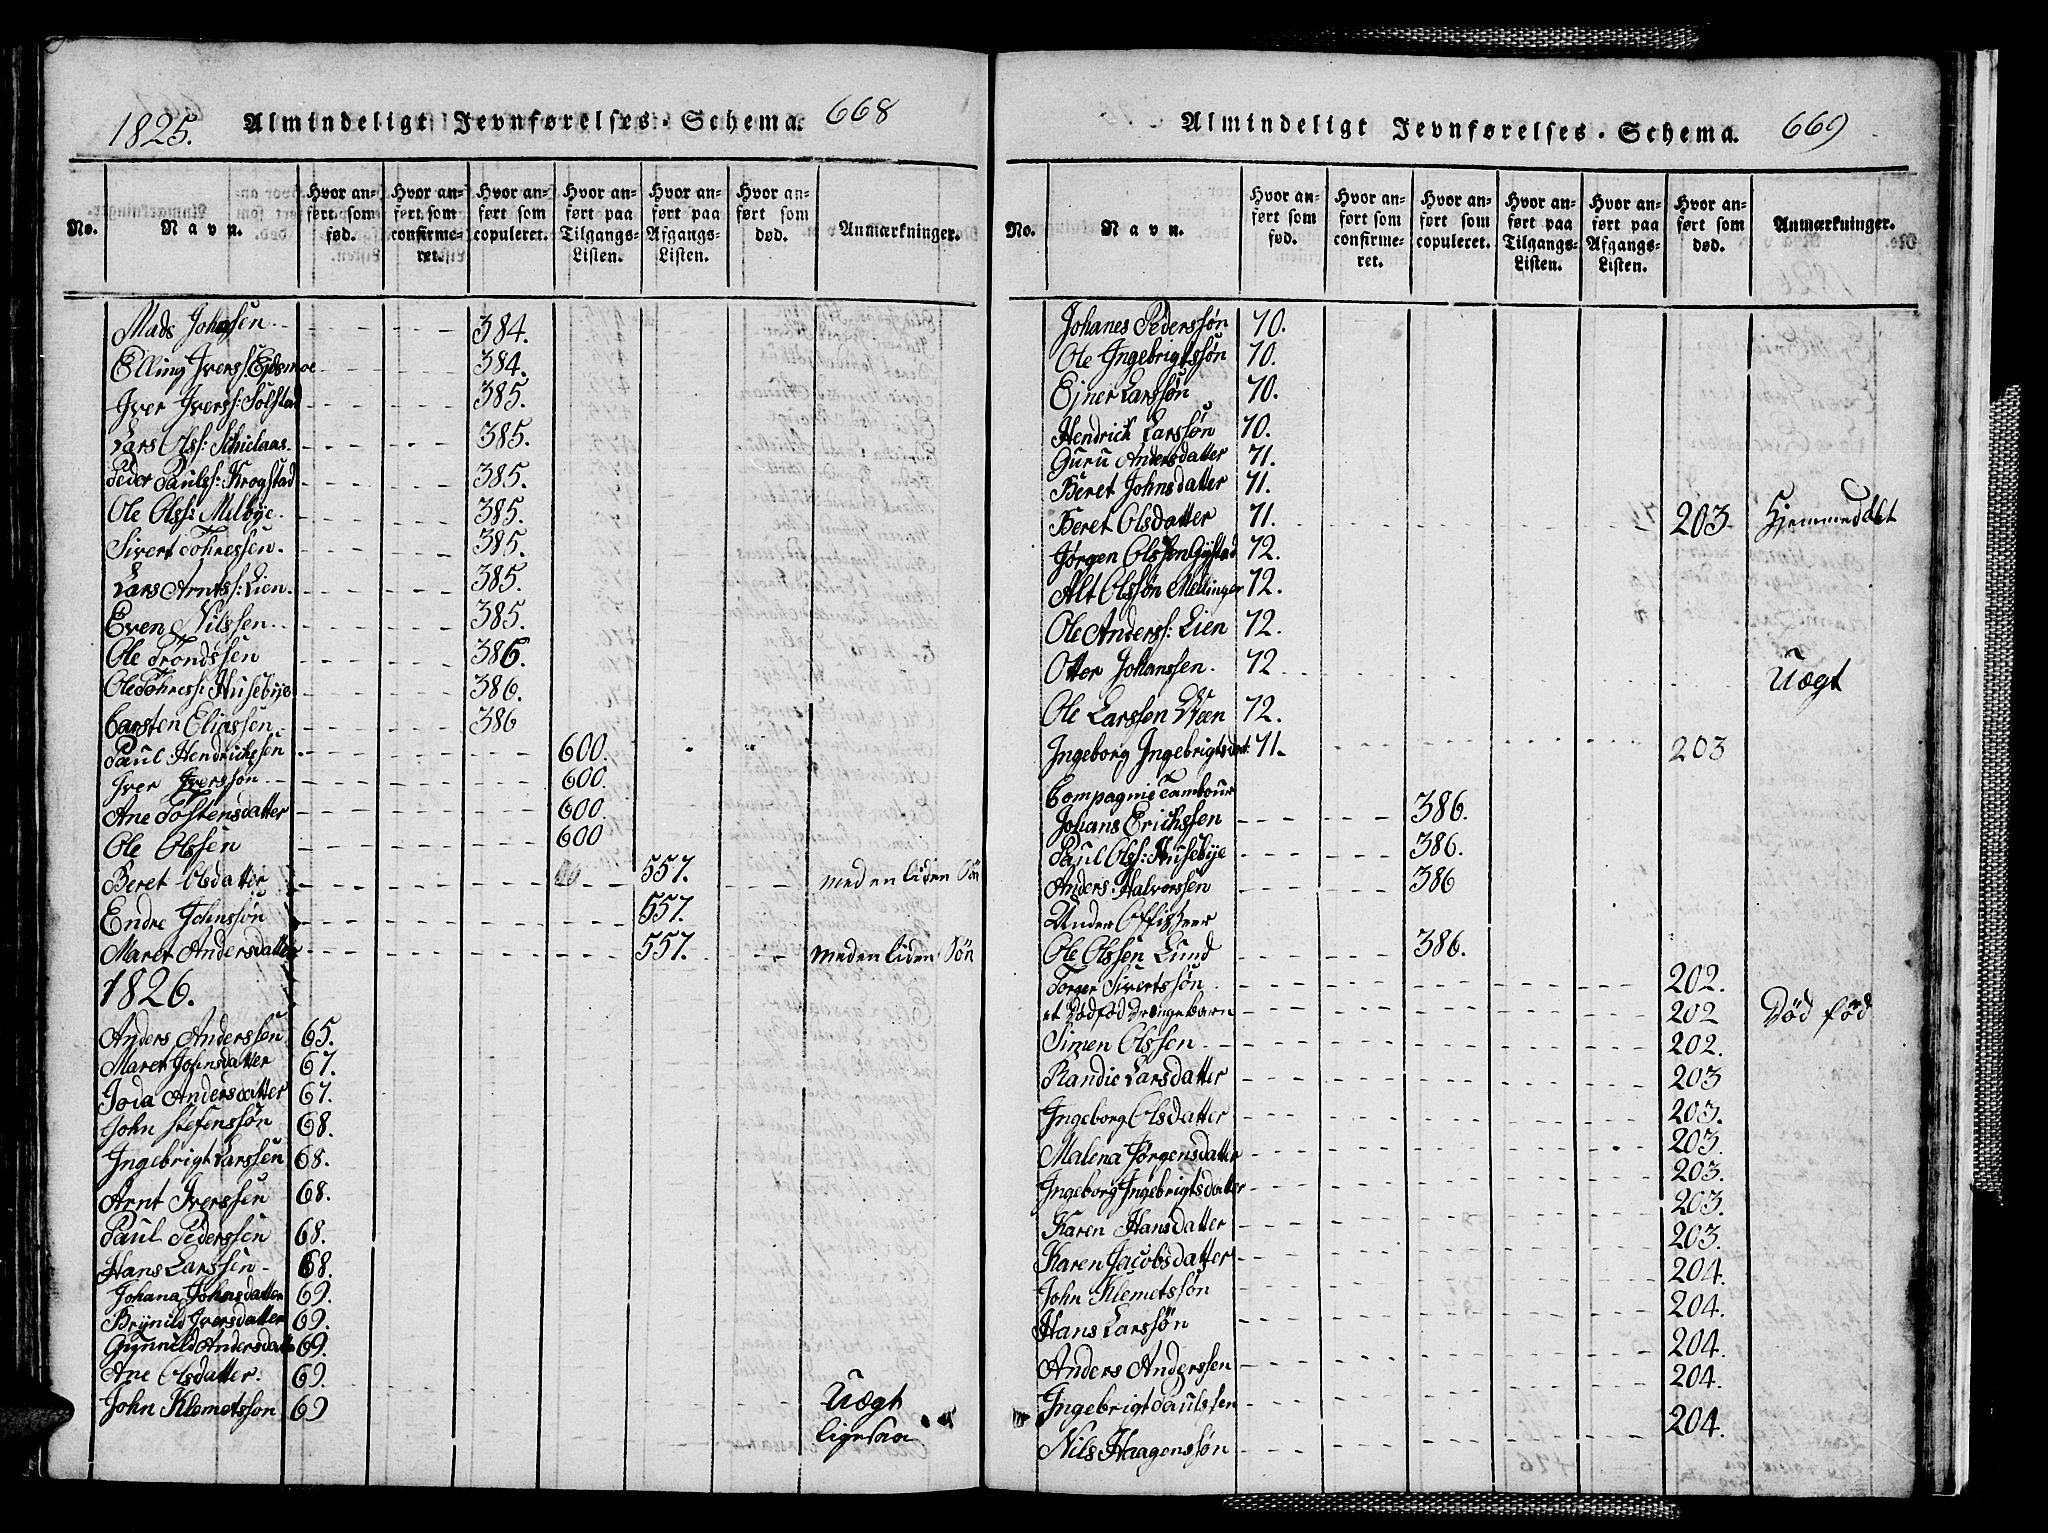 1825. Almindeligt Jevnførelses-Schema. 668
No. Navn. Hvor anført som fød. Hvor anført som confirmeret. Hvor anført som copuleret. Hvor anført paa Tilgangs-Listen. Hvor anført paa Afgangs-Listen. Hvor anført som død. Anmærkninger.
Mads Johnsen 384.
Elling Iverss: Eidsmoe 384.
Iver Iverss: Solstad 385.
Lars Olss: 385.
Peder Paulss: Krogstad 385.
Ole Olss: Melbye 385.
Sivert Tohressen 385.
Lars Arntss: Lien 385.
Even Nilssen 385.
Ole Trondssen 386.
Ole Tohress: Husebye 386.
Carsten Eliassen 386
Paul Hendrichsen 600.
Iver Iversson 600.
Ane Tostensdatter 600.
Ole Olssen 600
Beret Olsdatter 557. med en liden Sön
Endre Johnssön 557.
Maret Andersdatter 557. med en liden Sön
1826.
Anders Anderssen 65.
Maret Johnsdatter 67.
Joda Andersdatter 67.
John Stefenssön 68.
Ingebrigt Larssen 68.
Arnt Iverssen 68.
Paul Pederssen 68.
Hans Larssen 68.
Johana Johnsdatter 69.
Brynild Iversdatter 69.
Gunnild Andersdatter 69.
Ane Olsdatter. 69.
John Klemetsson 69 Uægt
ligesaa
Almindeligt Jevnførelses-Schema. 669
No. Navn. Hvor anført som fød. Hvor anført som confirmeret. Hvor anført som copuleret. Hvor anført paa Tilgangs-Listen. Hvor anført paa Afgangs-Listen. Hvor anført som død. Anmærkninger.
Johanes Pederssön 70.
Ole Ingebrigtssön 70.
Ejner Larssön 70.
Hendrich Larssön 70.
Guru Andersdatter 71.
Beret Johnsdatter 71.
Beret Olsdatter 71. 203 Hjemmedøbt
Jørgen Olssen Gystad 72.
Alt Olssön Mellinger 72.
Ole Anderss: Lien 72.
Otter Johanssen. 72 Uægt
Ole Larssen Steen 72.
Ingeborg Ingebrigtsdat: 71. 203
Compagnie Tambour
Johans Erichssen 386.
Paul Olss: Husebye 386.
Anders Halvorssen 386
Under Offisseer
Ole Olssen Lund 386.
Torger Sivertssön 202.
et Dödföd Drengebarn 202 Död föd
Simen Olssen 202.
Randie Larsdatter 203
Ingeborg Olsdatter 203.
Malena Jörgensdatter 203.
Ingeborg Ingebrigtsdatter 203.
Karen Hansdatter 203.
Karen Jacobsdatter 203.
John Klemetssön 204.
Hans Larssön 204.
Anders Anderssen 204.
Ingebrigt Paulssen 204.
Nils Haagenssön 204.